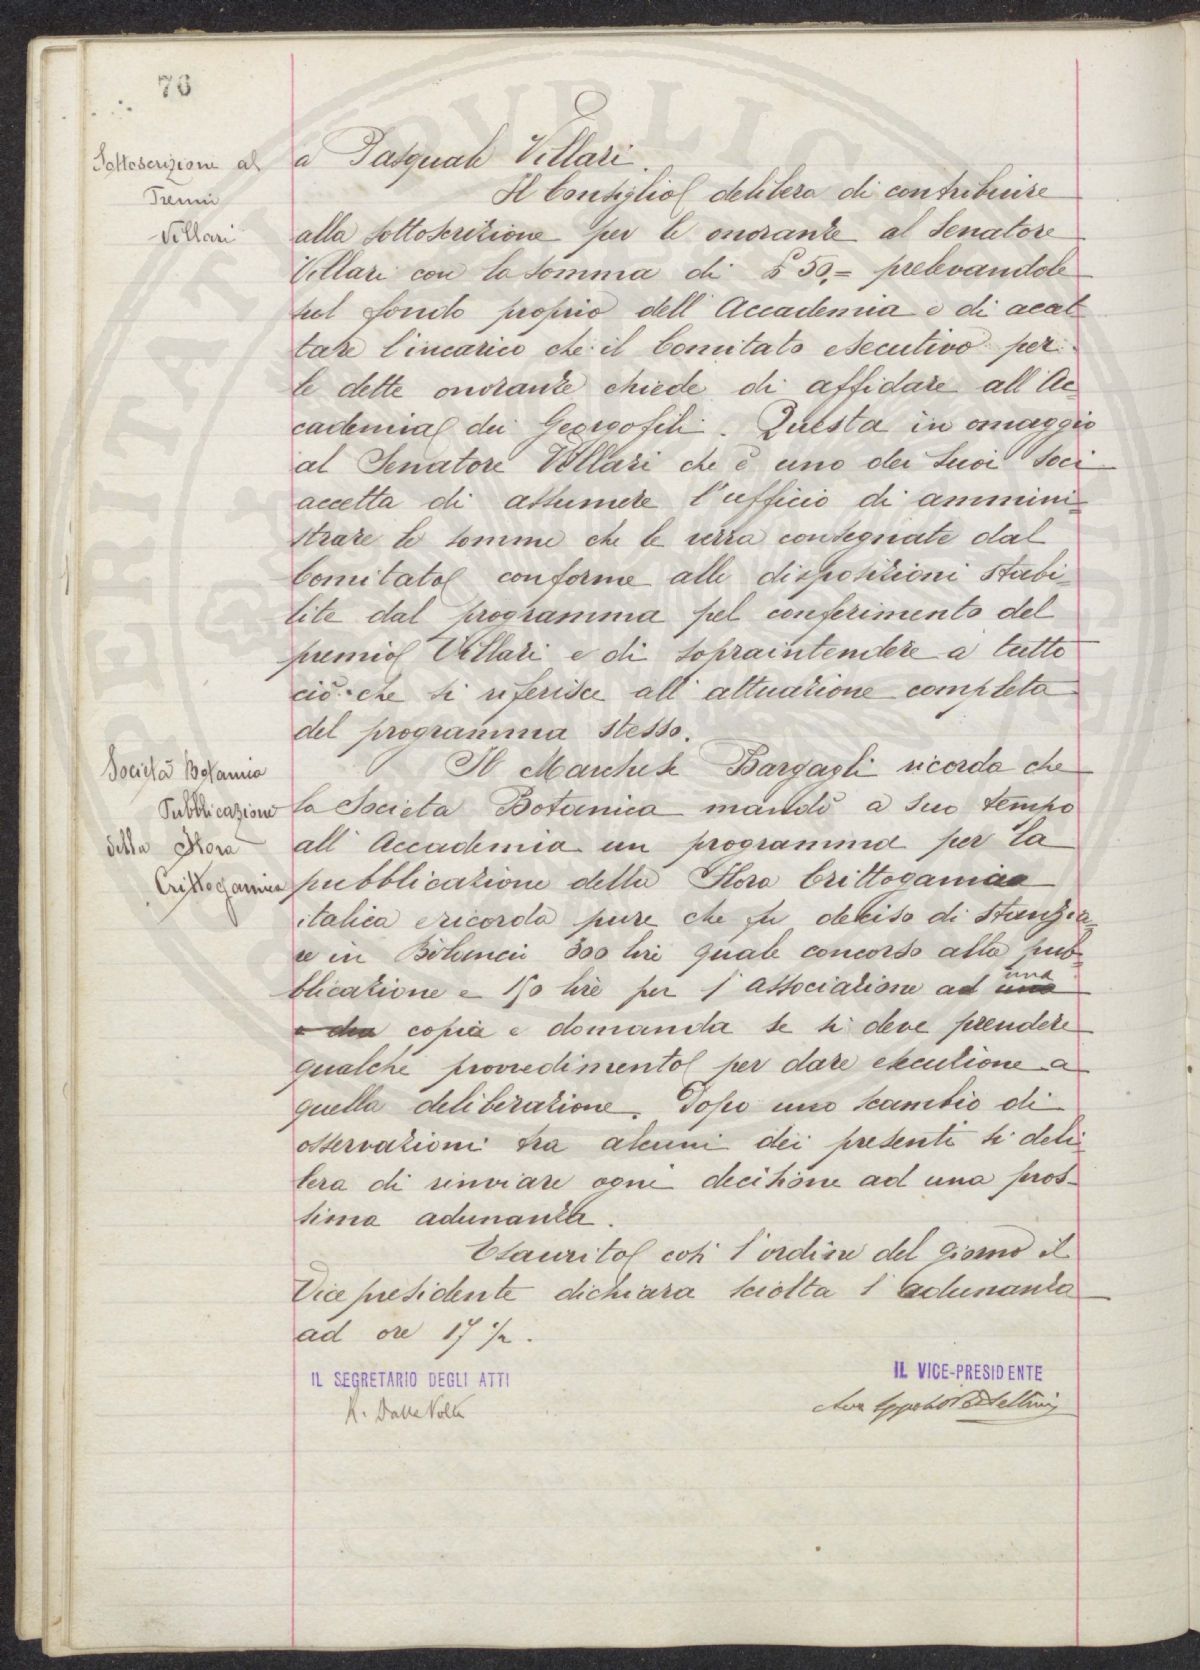 76
Sottoscrizione al
Premio
Villari
a Pasquale Villari.
Il Consiglio delibera di contribuire
alla sottoscrizione per le onoranze al Senatore
Villari con la somma di £ 50,= prelevandole
sul fondo proprio dell'Accademia e di accet
tare l'incarico che il Comitato esecutivo per
le dette onoranze chiede di affidare all'Ac=
cademia dei Georgofili. Questa in omaggio
al Senatore Villari che è uno dei suoi soci
accetta di assumere l'ufficio di ammini=
strare le somme che le verra consegnate dal
Comitato conforme alle disposizioni stabi=
lite dal programma pel conferimento del
premio Villari e di sopraintendere a tutto
ciò che si riferisce all'attuazione completa
del programma stesso.
Società Botanica
Pubblicazione
della Flora
Crittogamica
Il Marchese Bargagli ricorda che
la Societa Botanica mandò a suo tempo
all'Accademia un programma per la
pubblicazione della Flora Crittogamica
italica e ricorda pure che fu deciso di stanzia=
re in Bilancio 300 lire quale concorso alla pub=
blicazione e 150 lire per l'associazione ad una
copia e domanda se si deve prendere
qualche provvedimento per dare esecuzione a
quella deliberazione. Dopo uno scambio di
osservazioni tra alcuni dei presenti si deli=
bera di rinviare ogni decisione ad una pros=
sima adunanza.
Esaurito così l'ordine del giorno il
Vice presidente dichiara sciolta l'adunanza
ad ore 17 ½.
IL SEGRETARIO DEGLI ATTI
IL VICE-PRESIDENTE
R. Dalla Volta